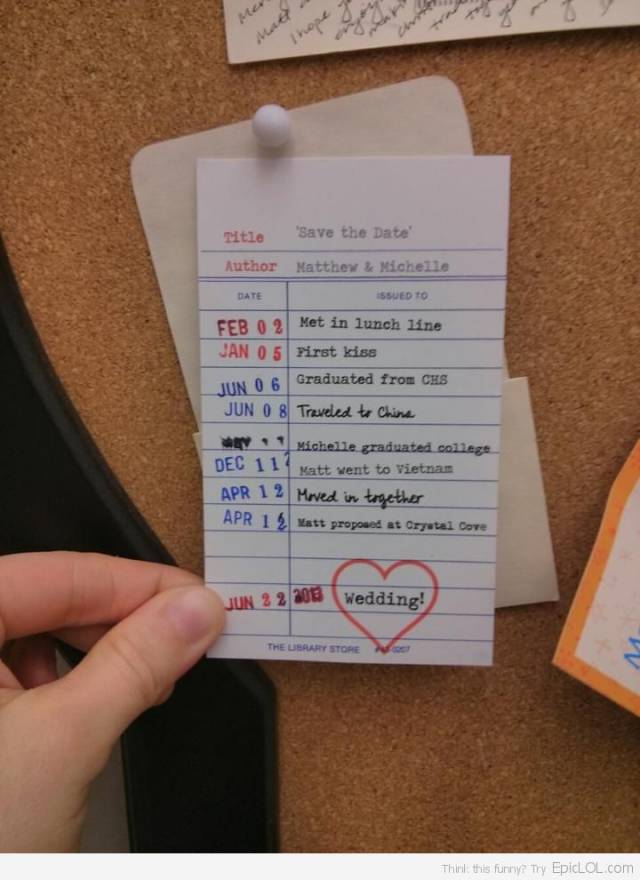 I hope
Title 'Save the Date'
Author Matthew & Michelle
DATE ISSUED TO
FEB 02 Met in lunch line
JAN 05 First kiss
JUN 06 Graduated from CHS
JUN 08 Traveled to China
Michelle graduated college
DEC 11 Matt went to Vietnam
APR 12 Moved in together
APR 12 Matt proposed at Crystal Cove
JUN 22 2013 Wedding!
THE LIBRARY STORE #43-0207
Think: this funny? Try EpicLOL.com